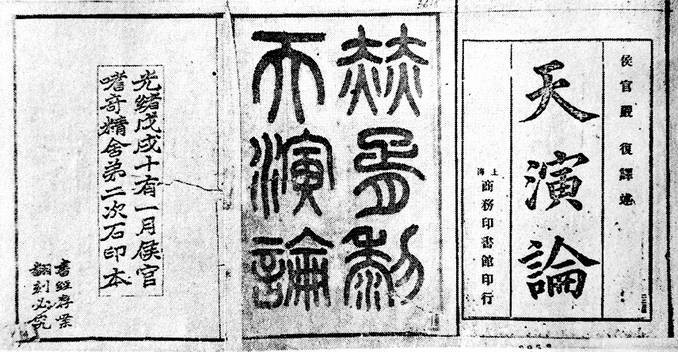 侯官嚴復譯述
天演論
上海商務印書館印行
赫胥黎
天演論
光緒戊戌十有一月侯官
嗜奇精舍弟二次石印本
書經存案
翻刻必究